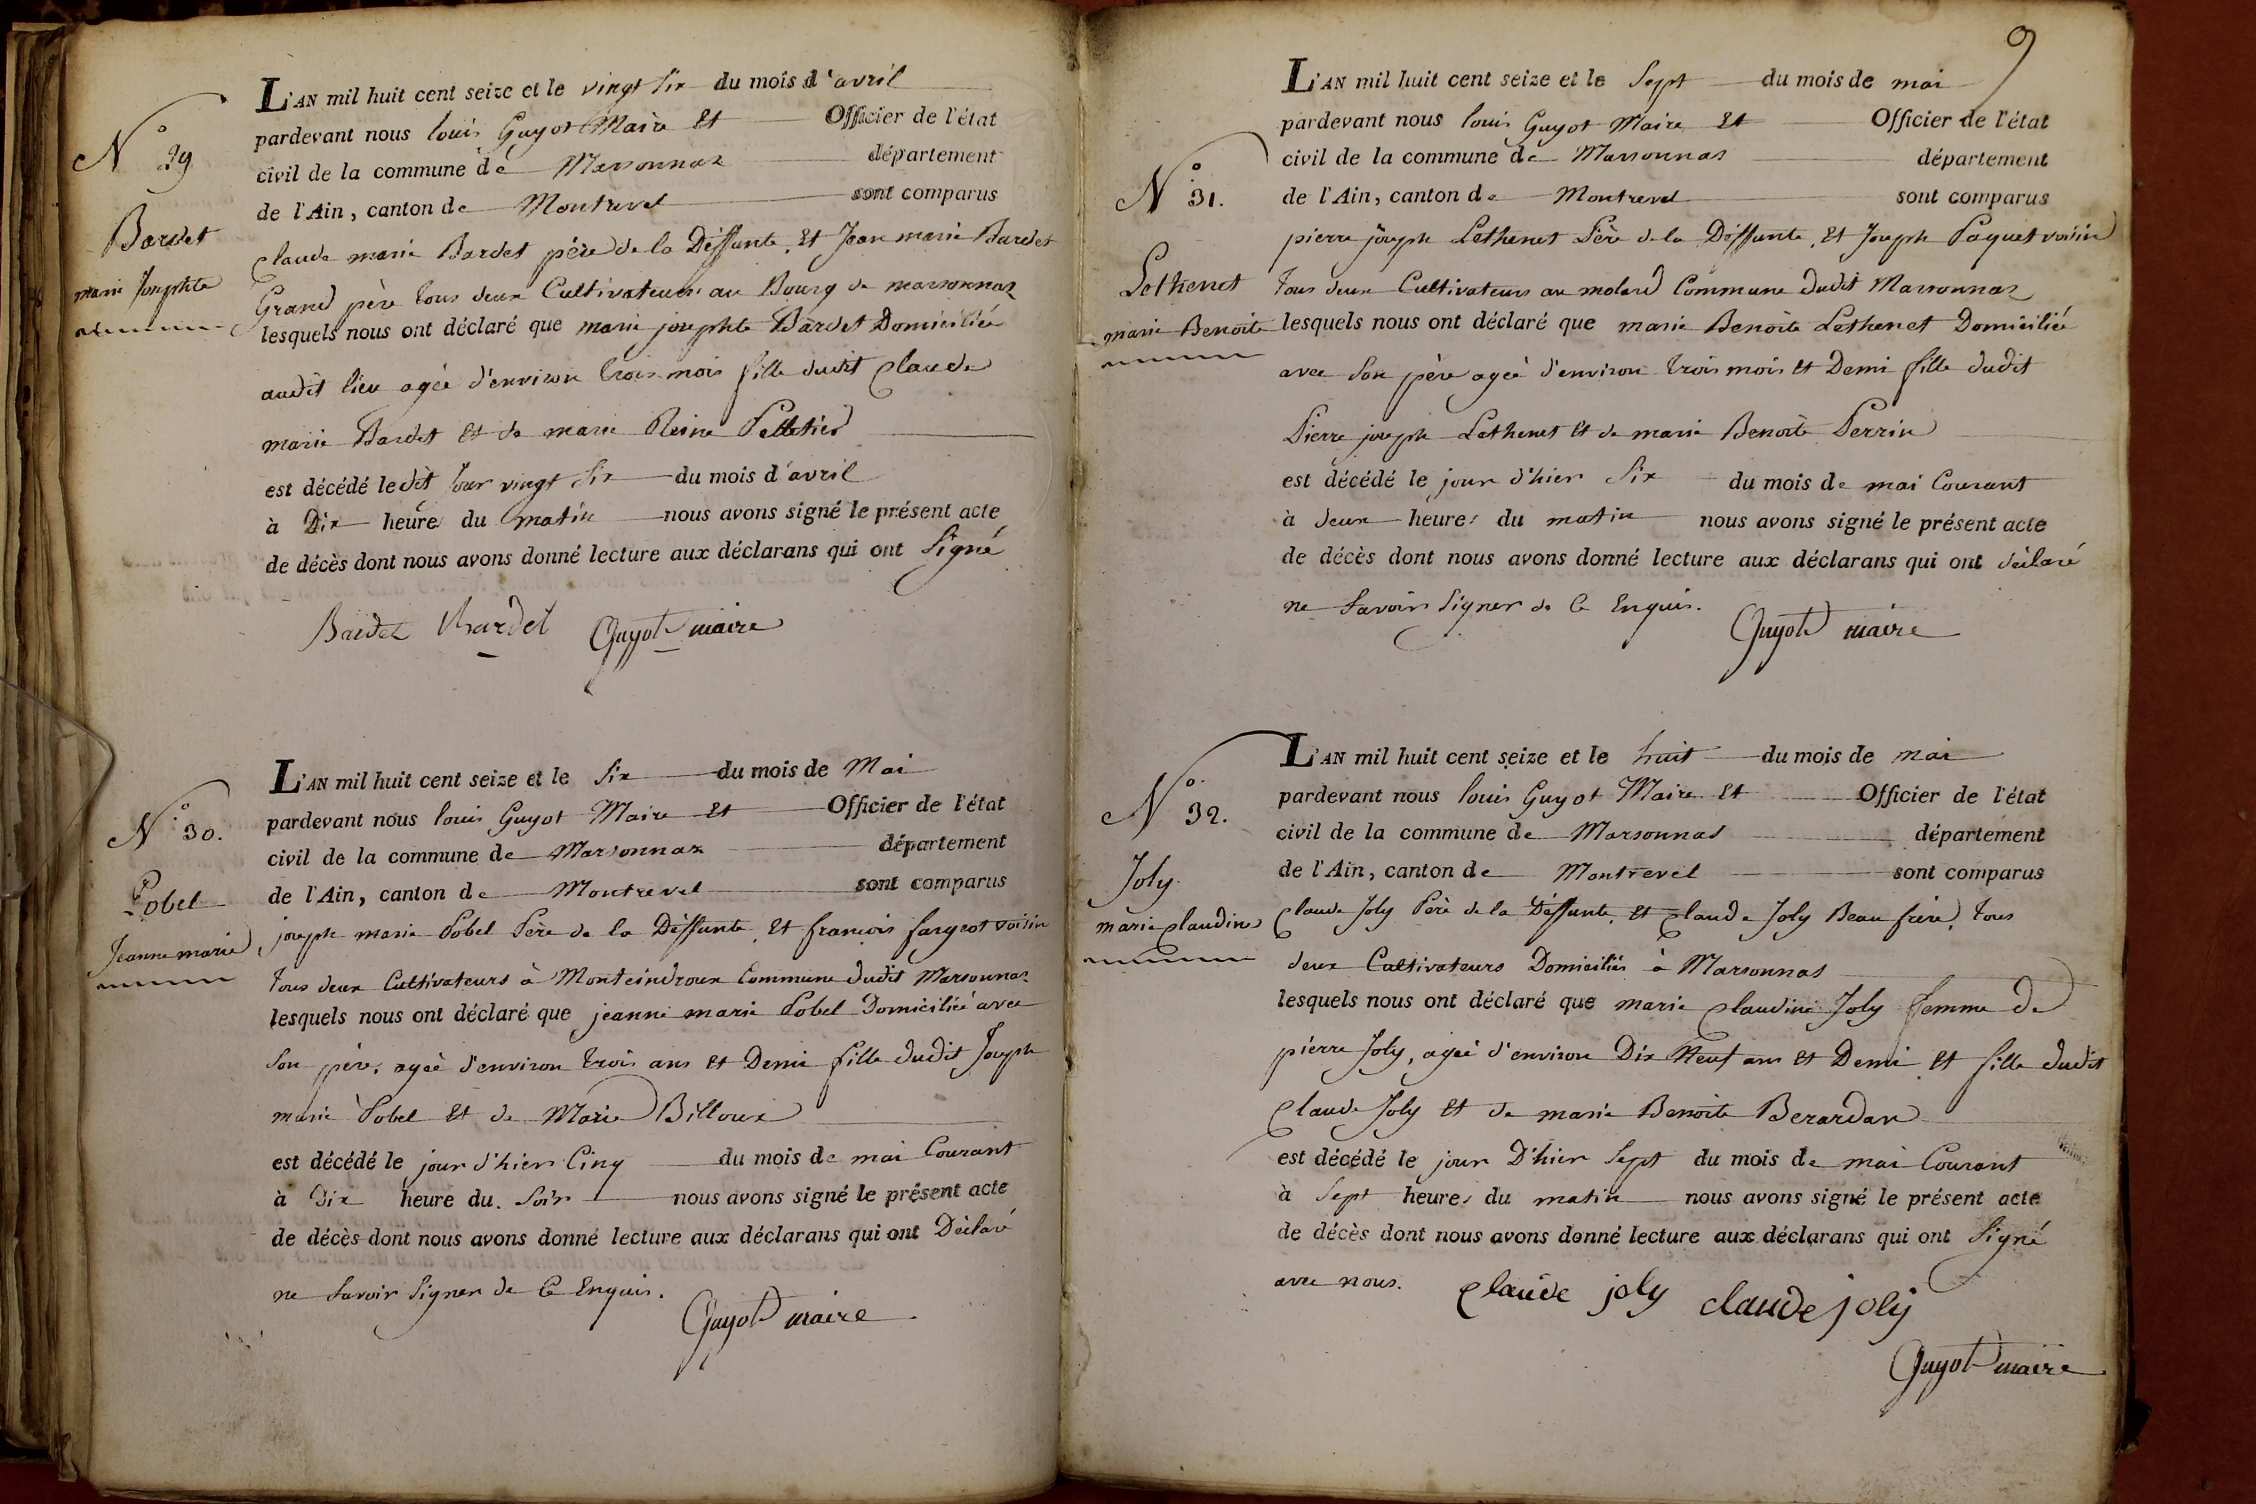 N° 29
Bardet
marie Josephte
L'AN mil huit cent seize et le vingt six du mois d'avril
pardevant nous louis Guyot Maire Et Officier de l'état
civil de la commune de Marsonnaz département
de l'Ain, canton de Montrevel sont comparus
Claude marie Bardet père de la Déffunte, Et Jean marie Bardet
Grand père tous deux Cultivateurs au Bourg de marsonnaz
lesquels nous ont déclaré que marie josephte Bardet Domiciliée
audit lieu agée d'environ trois mois fille dudit Claude
marie Bardet Et de marie Reine Pelletier
est décédé le dit Jour vingt six du mois d'avril
à Dix heures du matin nous avons signé le présent acte
de décès dont nous avons donné lecture aux déclarans qui ont Signé
Bardet Bardet Guyot maire
N° 30.
Pobel
Jeanne marie
L'AN mil huit cent seize et le six du mois de Mai
pardevant nous louis Guyot Maire Et Officier de l'état
civil de la commune de Marsonnaz département
de l'Ain, canton de Montrevel sont comparus
joseph marie Pobel Père de la Déffunte, Et françois fargeot voisin
tous deux Cultivateurs à Monteindroux Commune dudit Marsonnaz
lesquels nous ont déclaré que jeanne marie Pobel Domiciliée avec
son père, agée d'environ trois ans Et Demi fille dudit Joseph
marie Pobel Et de Marie Billoux
est décédé le jour d'hier Cinq du mois de mai Courant
à Dix heure du Soir nous avons signé le présent acte
de décès dont nous avons donné lecture aux déclarans qui ont Déclaré
ne Savoir Signer de Ce Enquis.
Guyot maire
9
N° 31.
Lethenet
marie Benoite
L'AN mil huit cent seize et le Sept du mois de mai
pardevant nous louis Guyot Maire Et Officier de l'état
civil de la commune de Marsonnas département
de l'Ain, canton de Montrevel sont comparus
pierre joseph Lethenet Père de la Déffunte, Et Joseph Paquet voisin
tous deux Cultivateurs au molard Commune dudit Marsonnaz
lesquels nous ont déclaré que marie Benoite Lethenet Domiciliée
avec Son père agée d'environ trois mois Et Demi fille dudit
Pierre joseph Lethenet Et de marie Benoite Perrin
est décédé le jour d'hier Six du mois de mai Courant
à deux heures du matin nous avons signé le présent acte
de décès dont nous avons donné lecture aux déclarans qui ont déclaré
ne Savoir Signer de Ce Enquis.
Guyot maire
N° 32.
Joly
marie Claudine
L'AN mil huit cent seize et le huit du mois de mai
pardevant nous louis Guyot Maire Et Officier de l'état
civil de la commune de Marsonnas département
de l'Ain, canton de Montrevel sont comparus
Claude Joly Père de la Déffunte, Et Claude Joly Beau frère, tous
deux Cultivateurs Domiciliés à Marsonnas
lesquels nous ont déclaré que marie Claudine Joly femme de
pierre Joly, agée d'environ Dix Neuf ans Et Demi Et fille dudit
Claude Joly Et de marie Benoite Berardan
est décédé le jour D'hier Sept du mois de mai Courant
à Sept heures du matin nous avons signé le présent acte
de décès dont nous avons donné lecture aux déclarans qui ont Signé
avec nous. Claude joly claude joly
Guyot maire